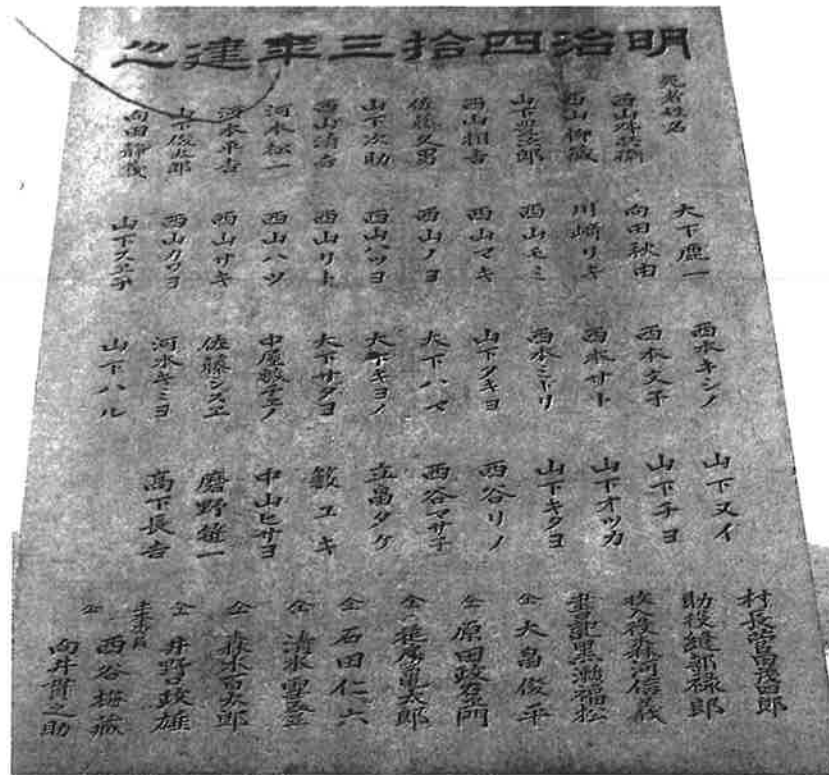 明治四拾三年建之
死者姓名
西山舛兵衛
西山柳蔵
山下豊次郎
西山相吉
佐藤久男
山下次助
西山清吉
河本松一
河本平吉
山下俊五郎
向田静哉
大下鹿一
向田秋由
川崎リキ
西山モミ
西山マキ
西山ノヨ
西山ハツヨ
西山リト
西山ハツ
西山サキ
西山カツヨ
山下スエ子
西本キシノ
西本文子
西本サト
西本ミドリ
山下クキヨ
大下ハマ
大下キヨノ
大下サダヨ
中屋敷チエノ
佐藤シズエ
河本キミヨ
山下ハル
山下又イ
山下チヨ
山下オツカ
山下キクヨ
西谷リノ
西谷マサ子
立畠タケ
籔ユキ
中山ヒサヨ
磨野雄一
高下長吉
村長 茂四郎
助役縫部禄郎
収入役森河信義
書記黒瀬福松
仝 大畠俊平
仝 原田政右衛門
仝 尾亀太郎
仝 石田仁六
仝 清水
仝 森永百太郎
仝 井野口政雄
仝 西谷梅蔵
向井 之助